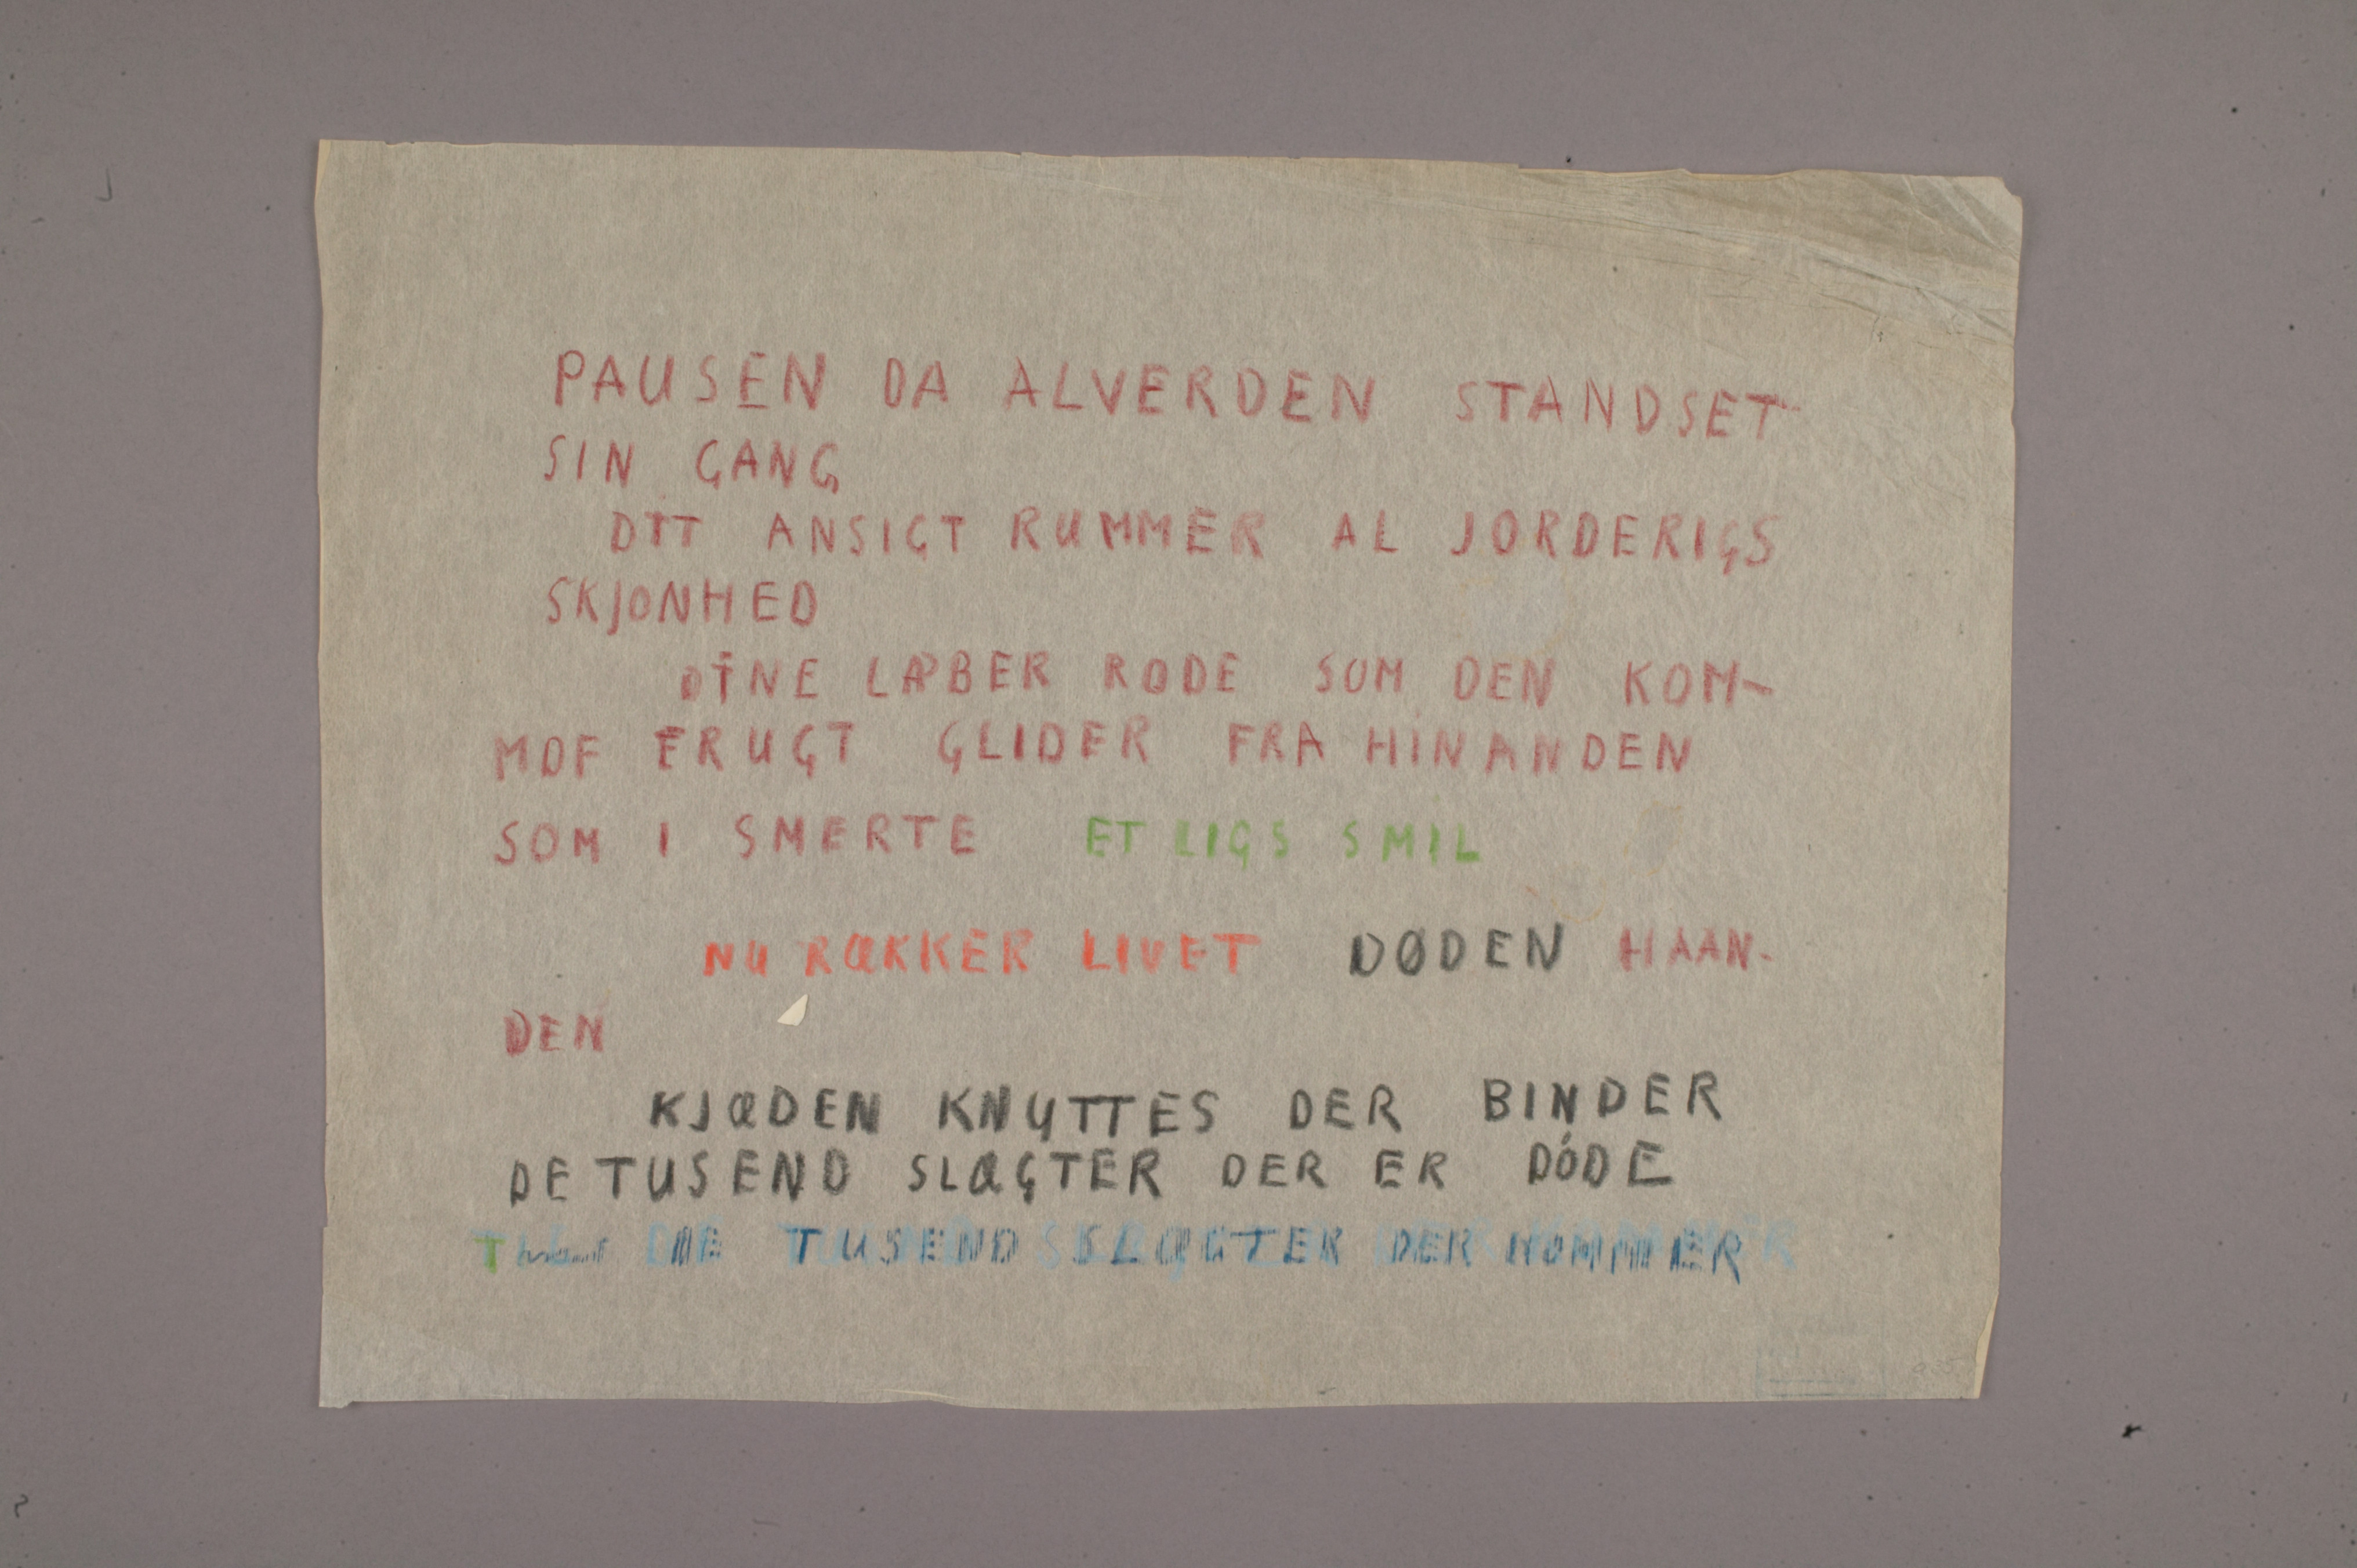 PAUSEN DA ALVERDEN STANDSET
SIN GANG
DIT ANSIGT RUMMER AL JORDERIGS
SKJONHED
DINE LÆBER RODE SOM DEN KOM-
MDE FRUGT GLIDER FRA HINANDEN
SOM I SMERTE ET LIGS SMIL
NU RÆKKER LIVET DØDEN HAAN-
DEN
KJÆDEN KNYTTES DER BINDER
DE TUSEND SLÆGTER DER ER DÓDE
DE TUSEND SLÆGTER DER KOMMER